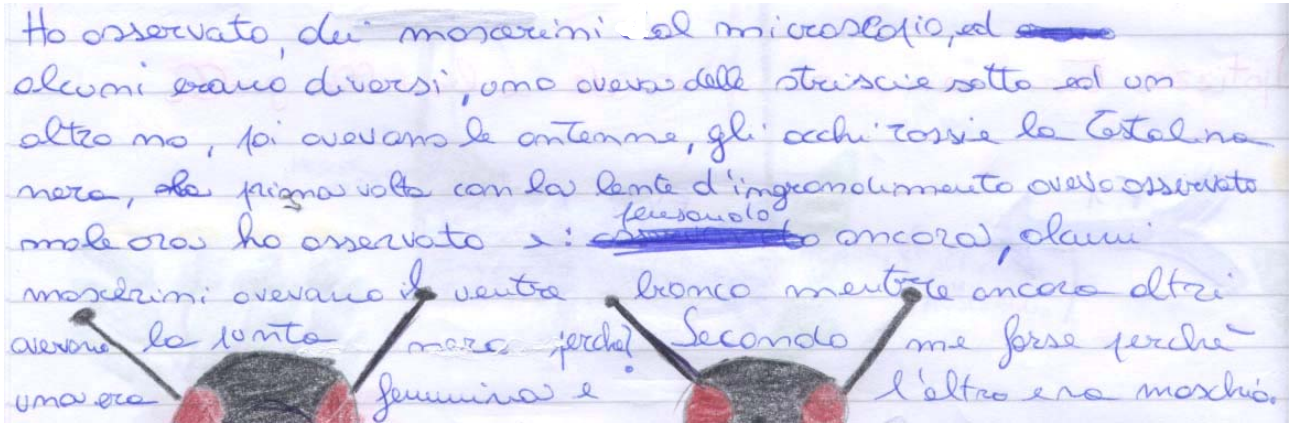 Ho osservato, dei moscerini al microscopio, ed
alcuni erano diversi, uno aveva delle striscie sotto ed un
altro no, poi avevano le antenne, gli occhi rossi e la testolina
nera, la prima volta con la lente d'ingrandimento avevo osservato
male ora ho osservato e: pensandolo ancora, alcuni
moscerini avevano il ventre bronco mentre ancora altri
avevano la punta nera perchè? Secondo me forse perchè
una era femmina e l'altro era maschio.